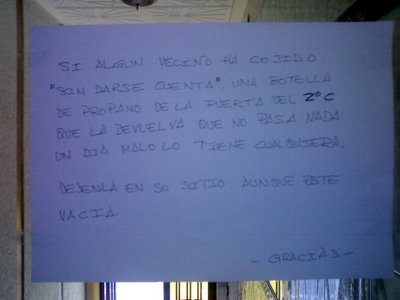 SI ALGUN VECINO HA COJIDO
"SIN DARSE CUENTA". UNA BOTELLA
DE PROPANO DE LA PUERTA DEL 2º C
QUE LA DEVUELVA QUE NO PASA NADA
UN DIA MALO LO TIENE CUALQUIERA.
DEJENLA EN SU SITIO AUNQUE ESTE
VACIA.
- GRACIAS -